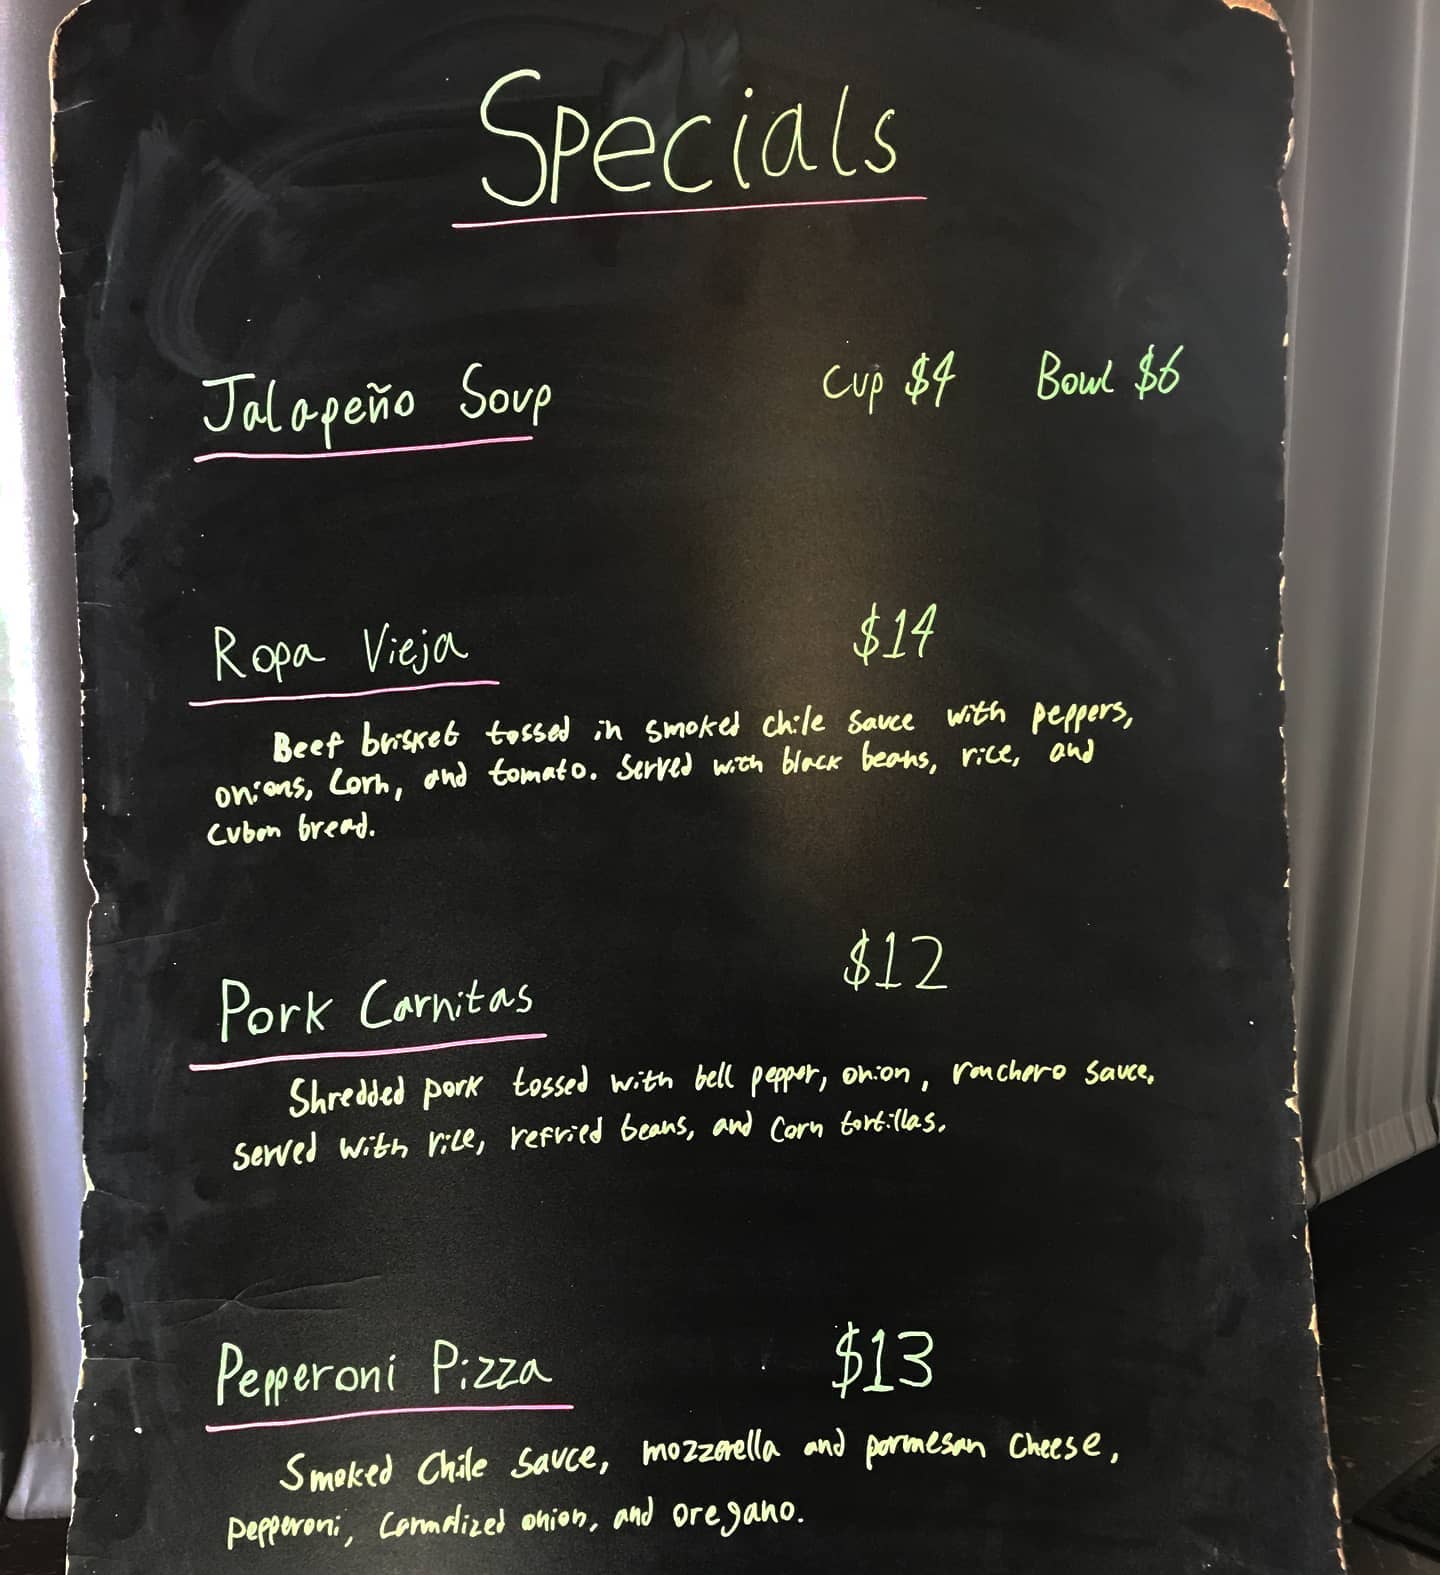 Specials
Jalapeño Soup Cup $4 Bowl $6
Ropa Vieja $14
Beef brisket tossed in smoked chile sauce with peppers,
onions, corn, and tomato. Served with black beans, rice, and
Cuban bread.
Pork Carnitas $12
Shredded pork tossed with bell pepper, onion, ranchero sauce.
Served with rice, refried beans, and corn tortillas.
Pepperoni Pizza $13
Smoked Chile Sauce, mozzarella and parmesan cheese,
pepperoni, carmalized onion, and oregano.